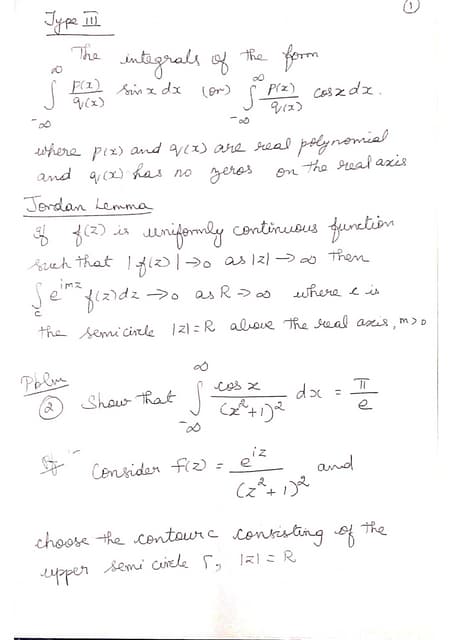 ①
Type III
The integrals of the form
∫_{-∞}^{∞} P(x)/q(x) sin x dx (or) ∫_{-∞}^{∞} P(x)/q(x) cos x dx.
where p(x) and q(x) are real polynomial
and q(x) has no zeros on the real axis
Jordan Lemma
If f(z) is uniformly continuous function
such that |f(z)| → 0 as |z| → ∞ then
∫_c e^{imz} f(z) dz → 0 as R → ∞ where c is
the semicircle |z| = R above the real axis, m > 0
Pblm
② Show that ∫_{-∞}^{∞} cos x/(x²+1)² dx = π/e
Consider f(z) = e^{iz}/(z²+1)² and
choose the contour c consisting of the
upper semi circle Γ, |z| = R